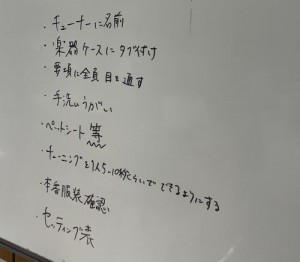 ・チューナーに名前
・楽器ケースにタグ付け
・要項に全員目を通す
・手洗いうがい
・ペットシート等
・チューニングを1人5〜10秒くらいでできるようにする
・本番服装確認
・セッティング表